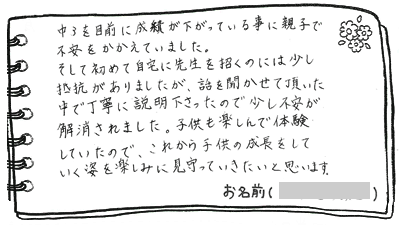 中3を目前に成績が下がっている事に親子で
不安をかかえていました。
そして初めて自宅に先生を招くのには少し
抵抗がありましたが、話を聞かせて頂いた
中で丁寧に説明下さったので少し不安が
解消されました。子供も楽しんで体験
していたので、これから子供の成長をして
いく姿を楽しみに見守っていきたいと思います。
お名前( )